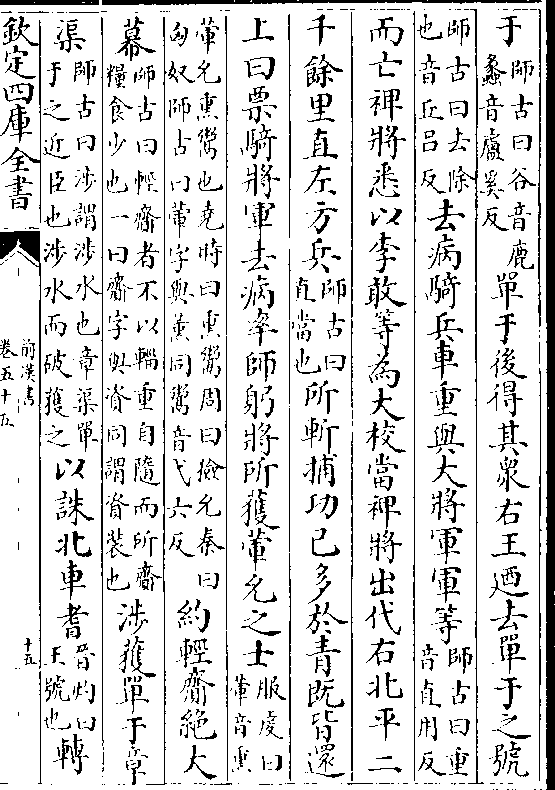 于師古曰谷音鹿蠡音盧奚反單于後得其衆右王迺去單于之號
師古曰去除也音丘吕反去病騎兵車重與大將軍軍等師古曰重音直用反
而亡裨將悉以李敢等為大校當裨將出代右北平二
千餘里直左方兵師古曰直當也所斬捕功已多於青既皆還
上曰票騎將軍去病率師躬將所獲葷允之士服虔曰葷音熏
葷允熏鬻也堯時曰熏鬻周曰獫允秦曰匈奴師古曰葷字與薰同鬻音弋六反約輕齎絶大
幕師古曰輕齎者不以輜重自隨而所齎糧食少也一曰齎字與資同謂資裝也涉獲單于章
渠師古曰涉謂涉水也章渠單于之近臣也涉水而破獲之以誅北車耆晉灼曰王號也轉
欽定四庫全書
前漢書
卷五十五
十五